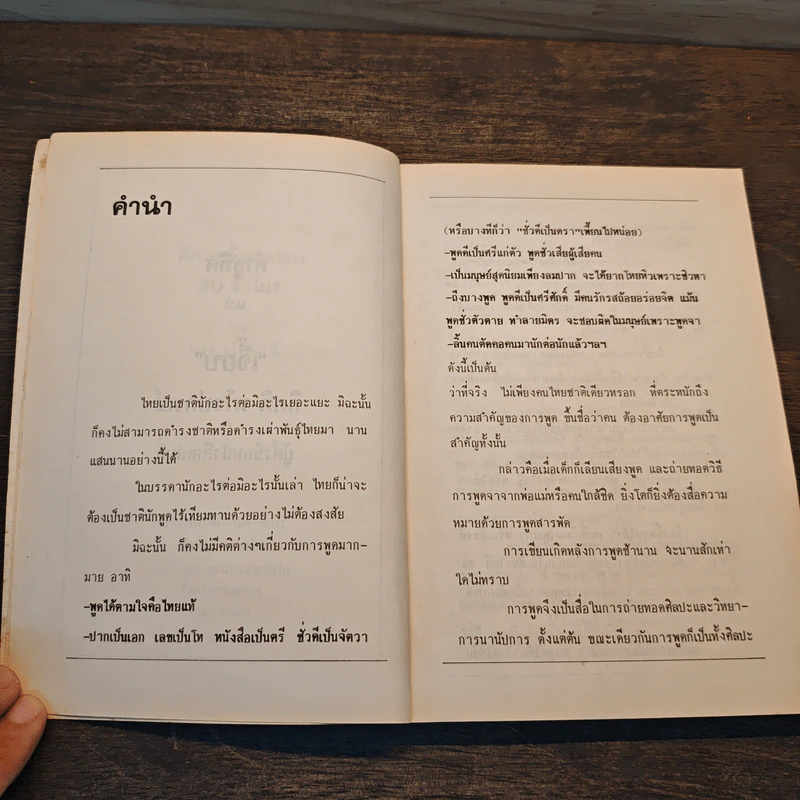 คำนำ
ไทยเป็นชาตินักอะไรต่อมิอะไรเยอะแยะ มิฉะนั้น
ก็คงไม่สามารถดำรงชาติหรือดำรงเผ่าพันธุ์ไทยมา นาน
แสนนานอย่างนี้ได้
ในบรรดานักอะไรต่อมิอะไรนั้นเล่า ไทยก็น่าจะ
ต้องเป็นชาตินักพูดไร้เทียมทานด้วยอย่างไม่ต้องสงสัย
มิฉะนั้น ก็คงไม่มีคติต่างๆเกี่ยวกับการพูดมาก-
มาย อาทิ
-พูดได้ตามใจคือไทยแท้
-ปากเป็นเอก เลขเป็นโท หนังสือเป็นตรี ชั่วดีเป็นจัตวา
(หรือบางทีก็ว่า "ชั่วดีเป็นตรา"เพี้ยนไปหน่อย)
-พูดดีเป็นศรีแก่ตัว พูดชั่วเสียผู้เสียคน
-เป็นมนุษย์สุดนิยมเพียงลมปาก จะได้ยากโหยหิวเพราะชิวหา
-ถึงบางพูด พูดดีเป็นศรีศักดิ์ มีคนรักรสถ้อยอร่อยจิต แม้น
พูดชั่วตัวตาย ทำลายมิตร จะชอบผิดในมนุษย์เพราะพูดจา
-ลิ้นคนตัดคอคนมานักต่อนักแล้วฯลฯ
ดังนี้เป็นต้น
ว่าที่จริง ไม่เพียงคนไทยชาติเดียวหรอก ที่ตระหนักถึง
ความสำคัญของการพูด ขึ้นชื่อว่าคน ต้องอาศัยการพูดเป็น
สำคัญทั้งนั้น
กล่าวคือเมื่อเด็กก็เลียนเสียงพูด และถ่ายทอดวิธี
การพูดจาจากพ่อแม่หรือคนใกล้ชิด ยิ่งโตก็ยิ่งต้องสื่อความ
หมายด้วยการพูดสารพัด
การเขียนเกิดหลังการพูดช้านาน จะนานสักเท่า
ใดไม่ทราบ
การพูดจึงเป็นสื่อในการถ่ายทอดศิลปะและวิทยา-
การนานัปการ ตั้งแต่ต้น ขณะเดียวกันการพูดก็เป็นทั้งศิลปะ